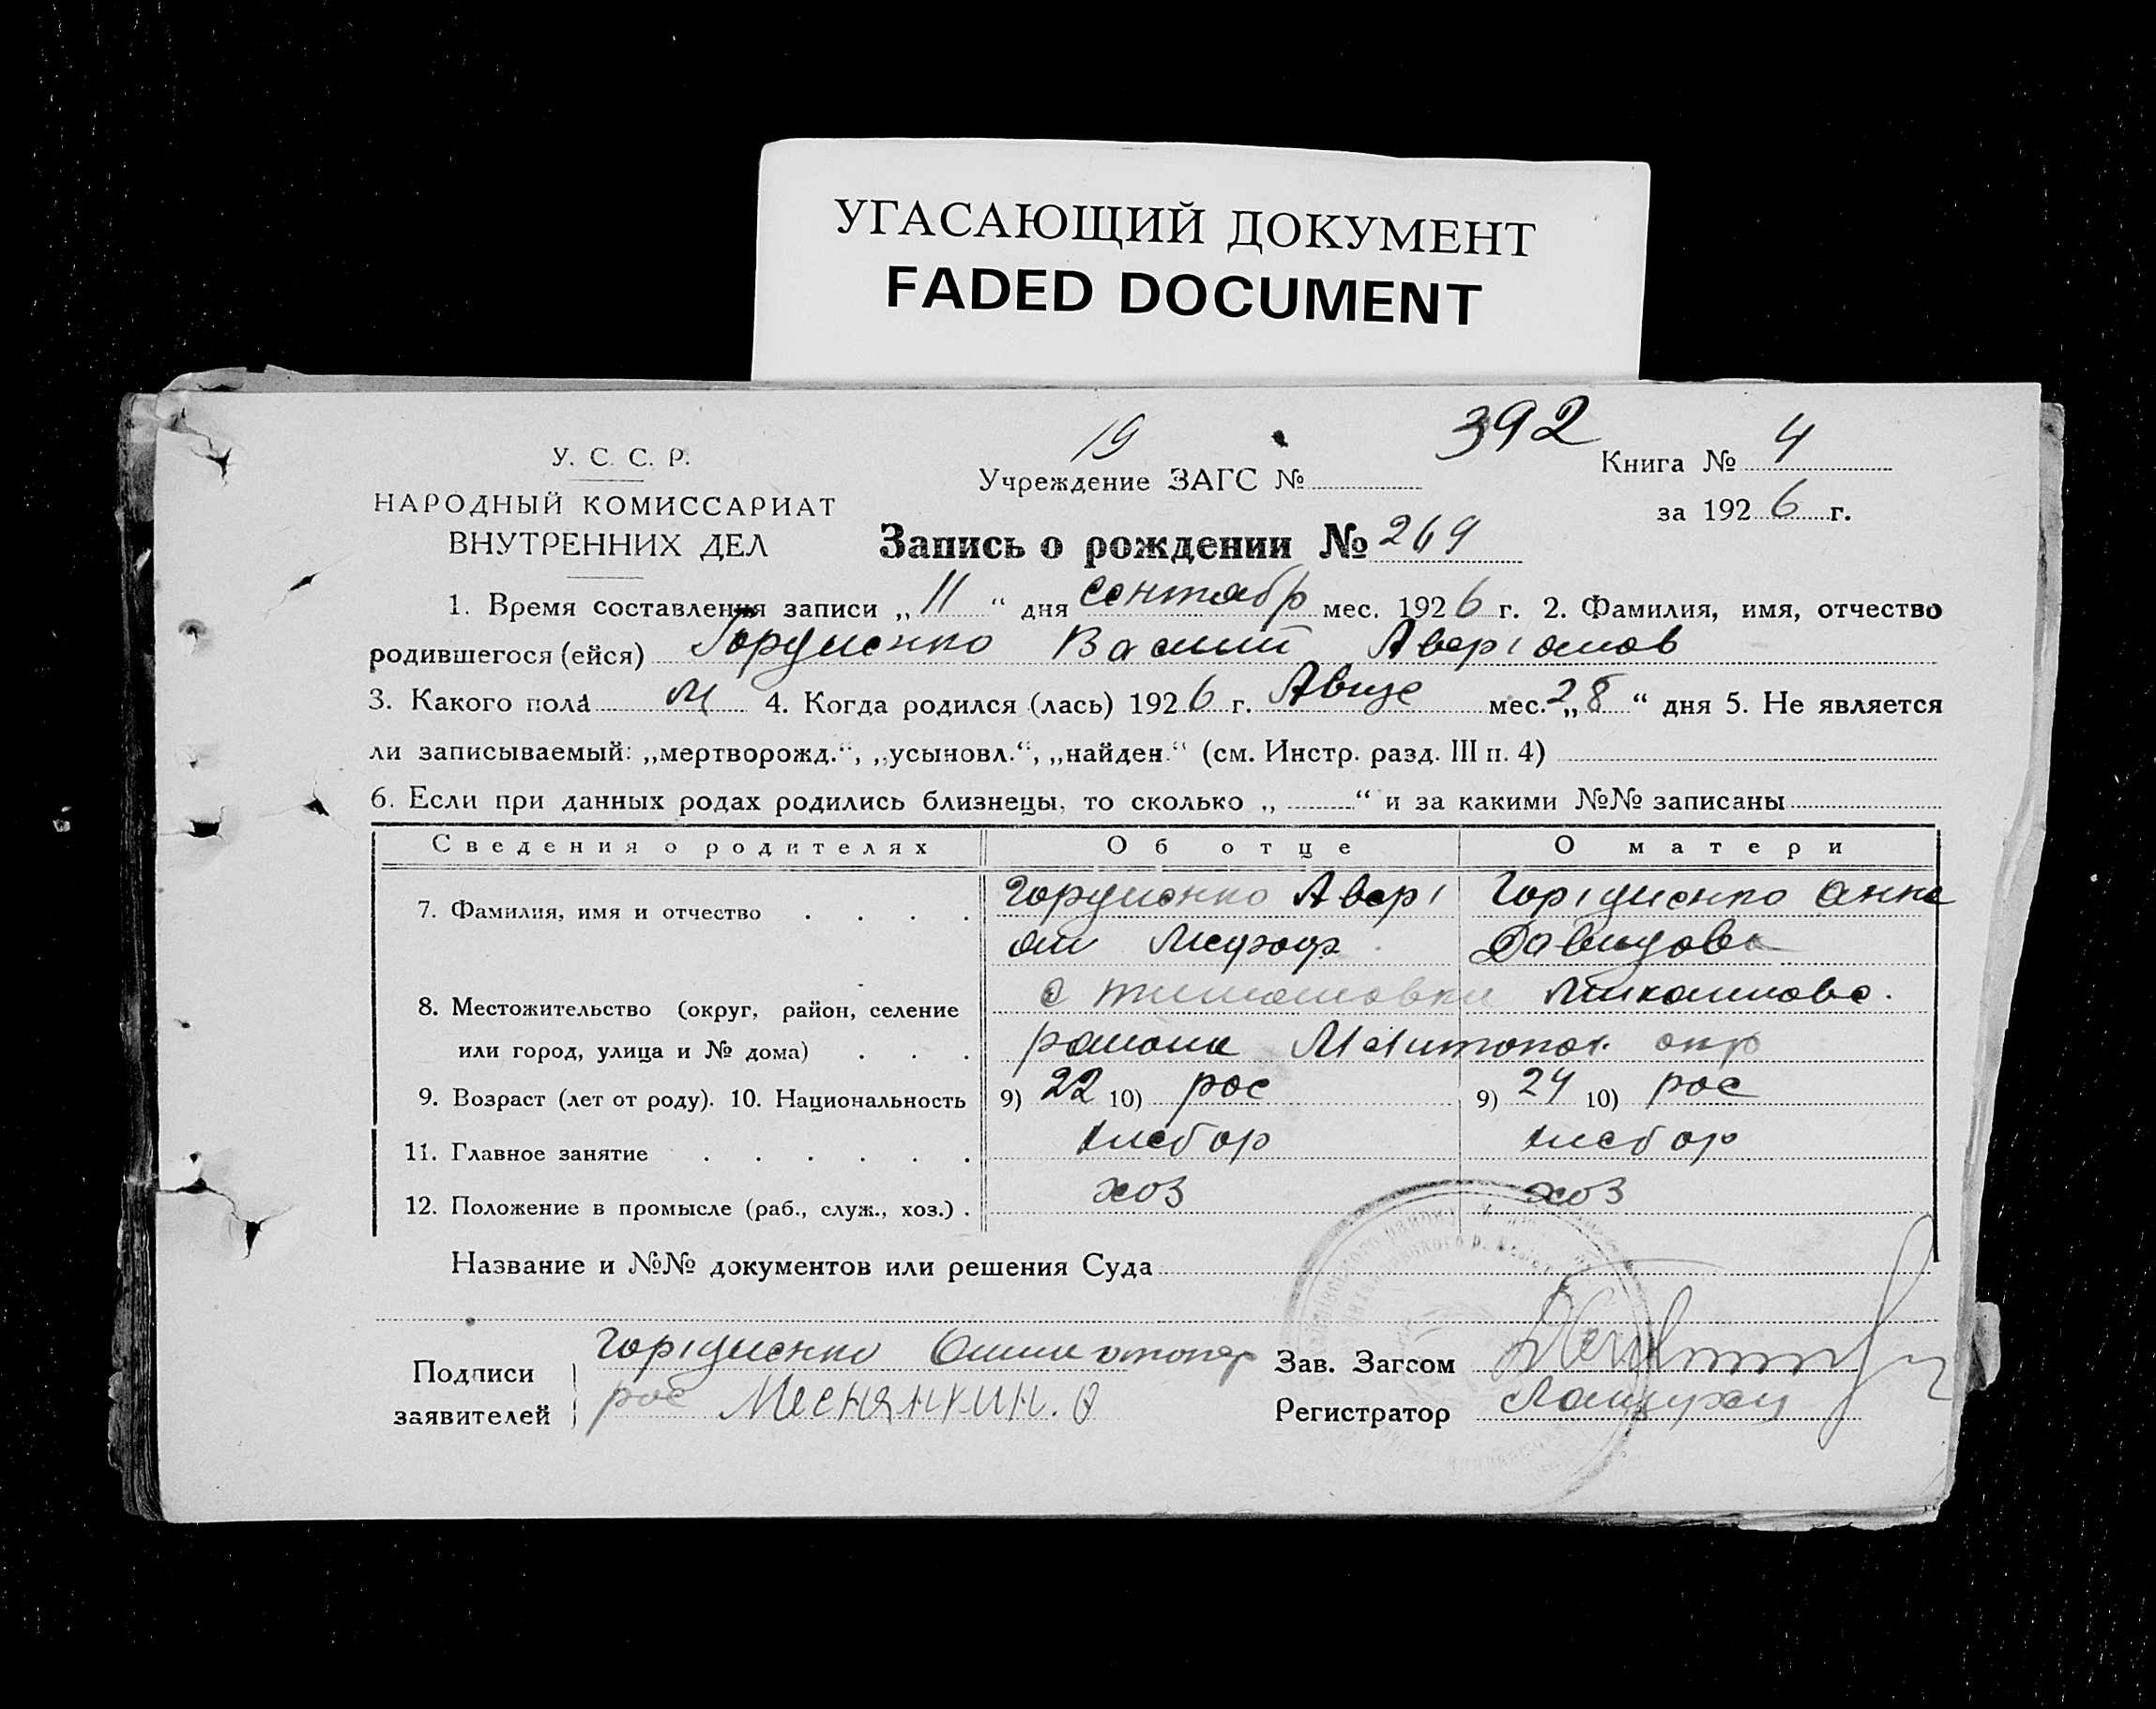 УГАСАЮЩИЙ ДОКУМЕНТ
FADED DOCUMENT
19 392
У. С. С. Р.
Учреждение ЗАГС №
Книга № 4
НАРОДНЫЙ КОМИССАРИАТ
за 1926 г.
ВНУТРЕННИХ ДЕЛ
Запись о рождении № 269
1. Время составления записи „ 11 “ дня сентябр мес. 1926 г. 2. Фамилия, имя, отчество
родившегося (ейся) Гордиенко Василий
3. Какого пола м 4. Когда родился (лась) 1926 г. мес. „28“ дня 5. Не является
ли записываемый: „мертворожд.“, „усыновл.“, „найден.“ (см. Инстр. разд. III п. 4)
6. Если при данных родах родились близнецы, то сколько „ “ и за какими №№ записаны
Сведения о родителях Об отце О матери
7. Фамилия, имя и отчество Гордиенко Авері Гордиенко Анна
Давидовн
8. Местожительство (округ, район, селение
или город, улица и № дома) района окр
9. Возраст (лет от роду). 10. Национальность 9) 22 10) рос 9) 24 10) рос
11. Главное занятие хлебор хлебор
12. Положение в промысле (раб., служ., хоз.) хоз хоз
Название и №№ документов или решения Суда
Подписи Гордиенко
заявителей рос
Зав. Загсом
Регистратор